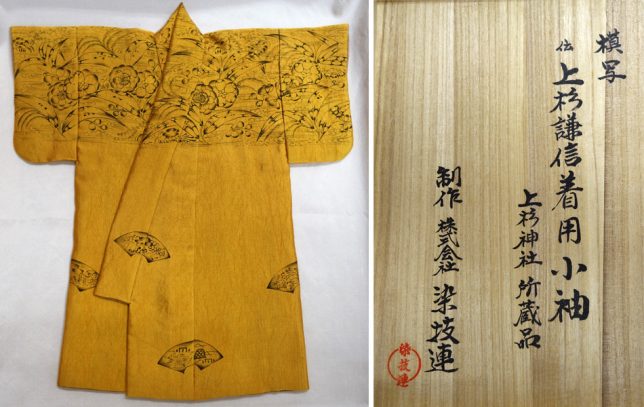 模写
伝 上杉謙信着用小袖
上杉神社 所蔵品
制作 株式会社 染技連
染技連